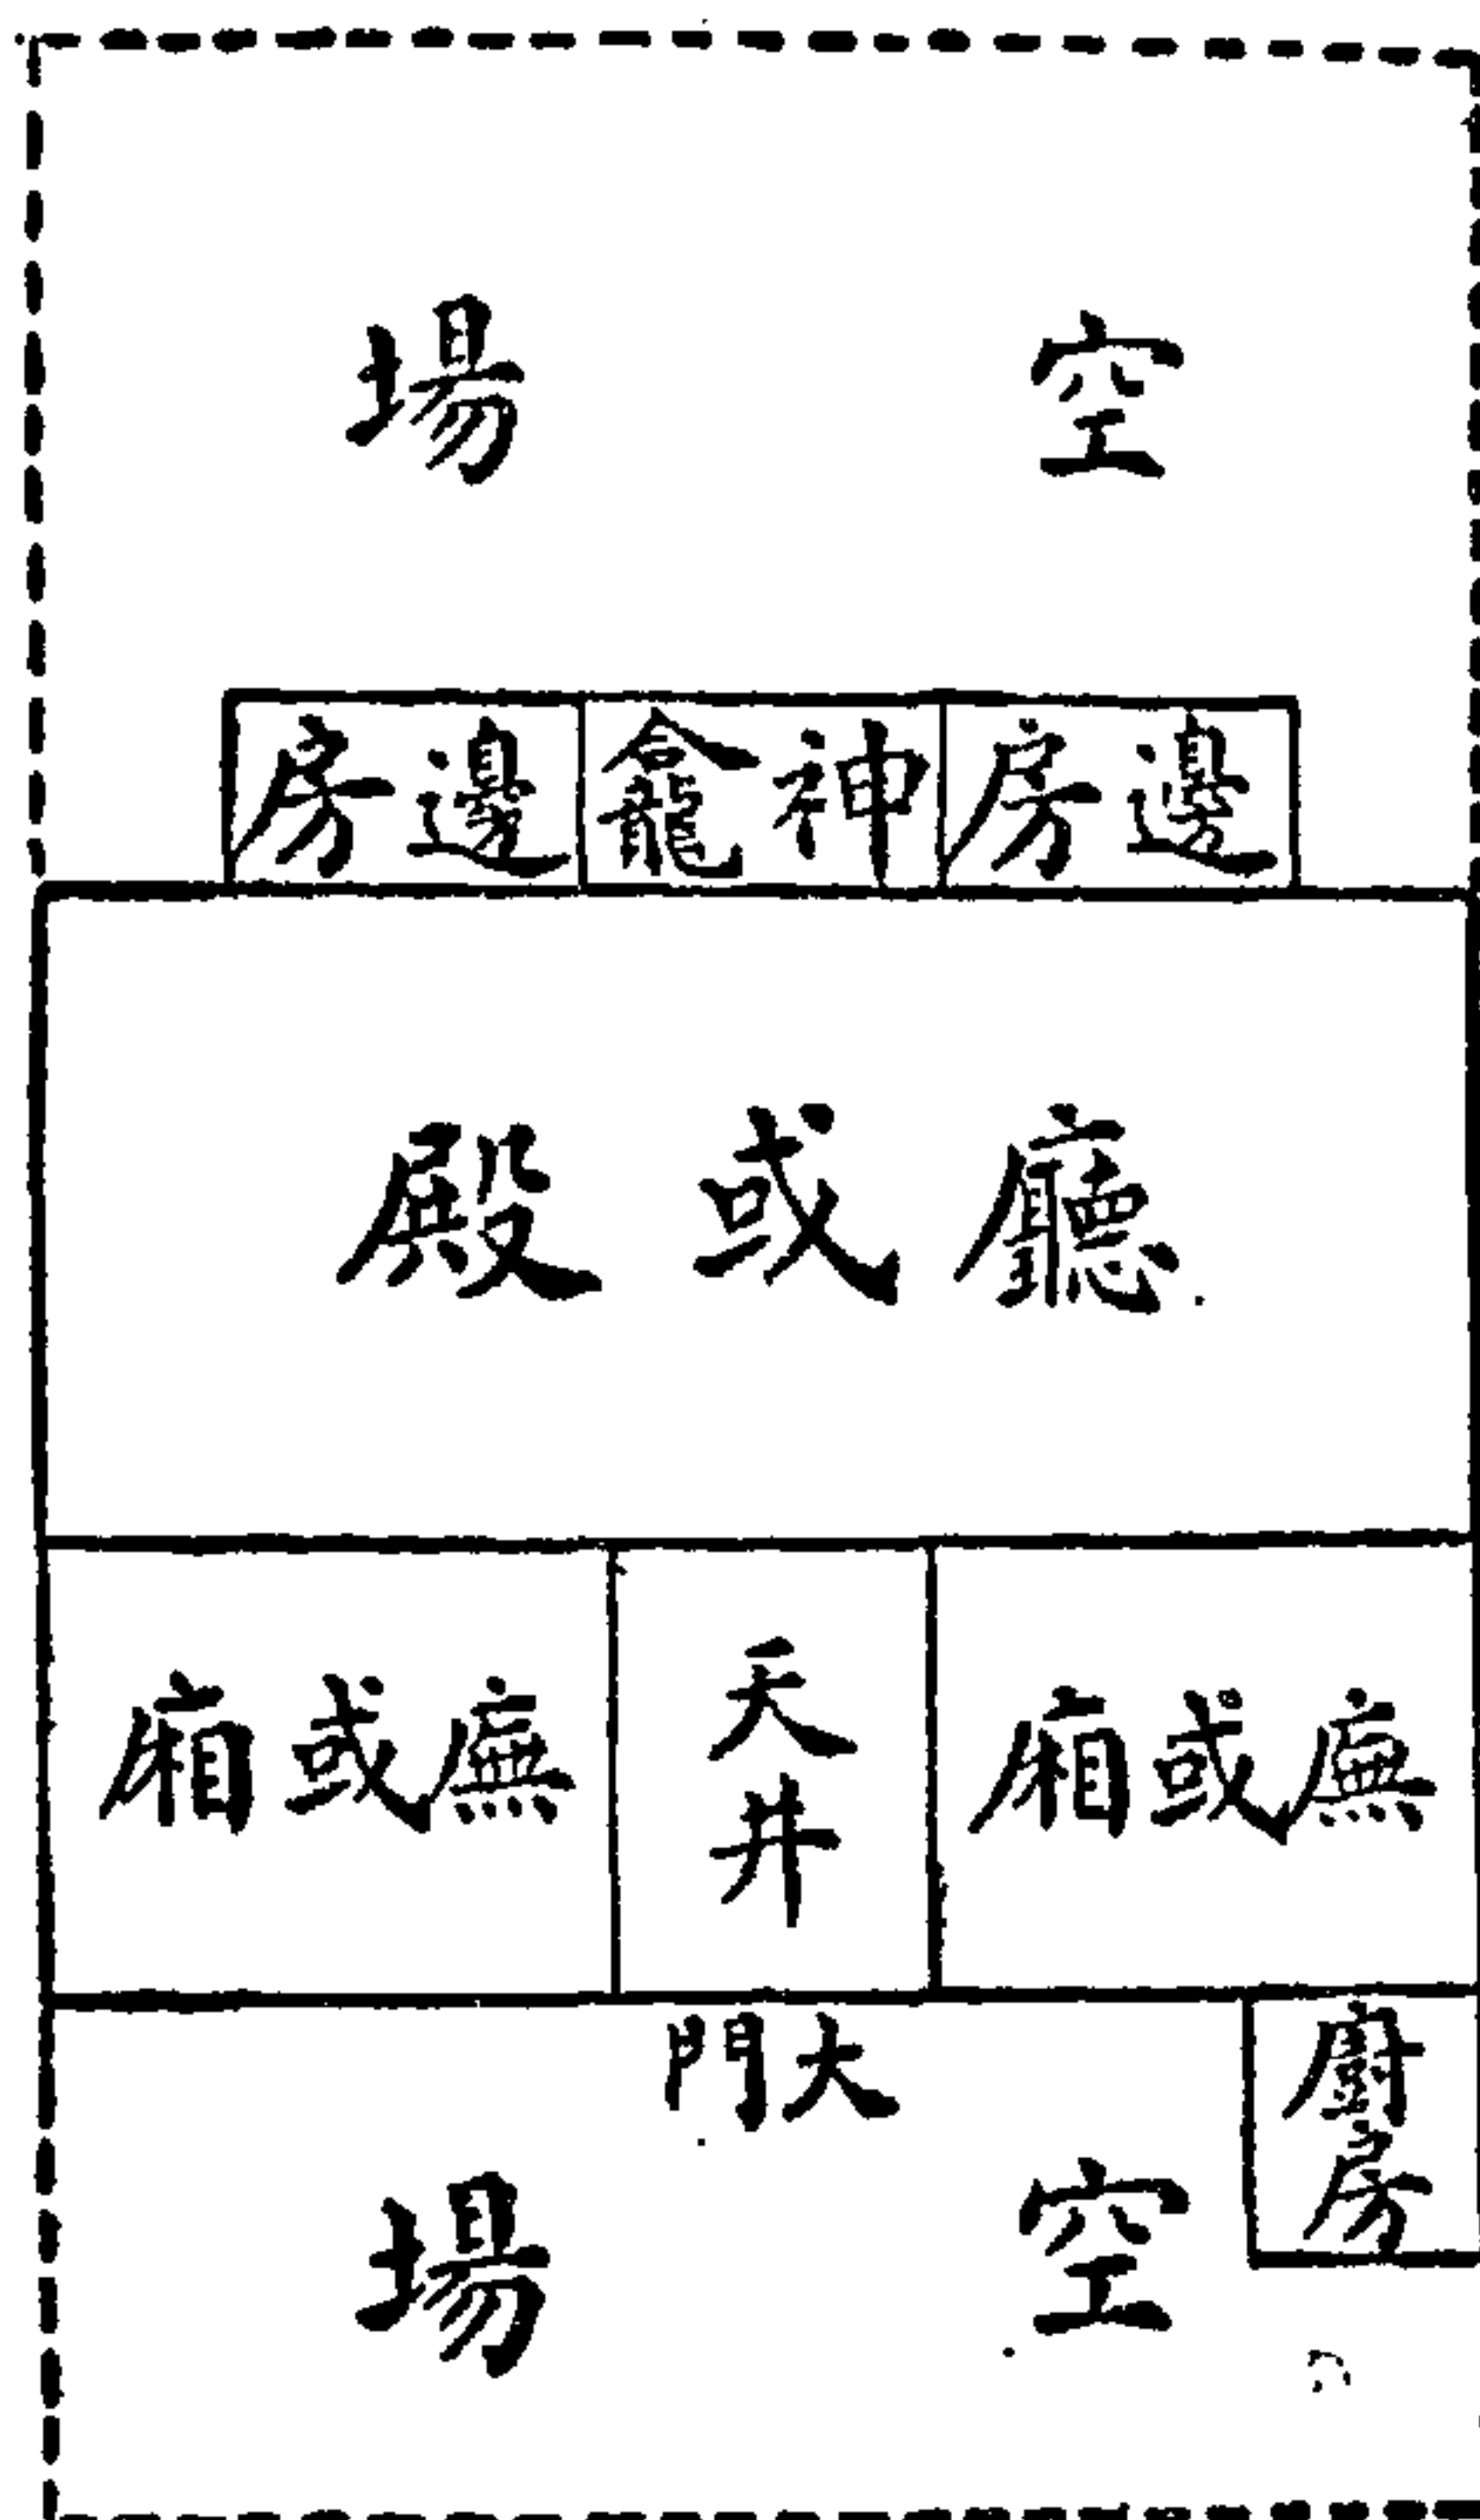 空場
邊房
神龕
邊房
廳或殿
廡或廂
天井
廡或廂
大門
廚房
空場